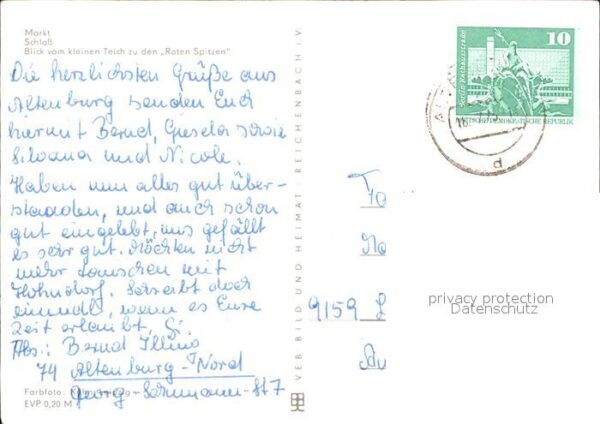 Markt
Schloß
Blick vom kleinen Teich zu den „Roten Spitzen"
Die herzlichsten Grüße aus
Altenburg senden Euch
hiermit Bernd, Gisela sowie
Silvana und Nicole.
Haben nun alles gut über-
standen, und auch schon
gut eingelebt, uns gefällt
es sehr gut. Möchten nicht
mehr tauschen mit
Hohndorf. Schreibt doch
einmal, wenn es Eure
Zeit erlaubt,
Abs.: Bernd Illing
74 Altenburg-Nord
Georg-Schumann-Str 7
Farbfoto:
EVP 0,20 M
VEB BILD UND HEIMAT · REICHENBACH i. V.
10
DEUTSCHE DEMOKRATISCHE REPUBLIK
d
9159 L
privacy protection
Datenschutz